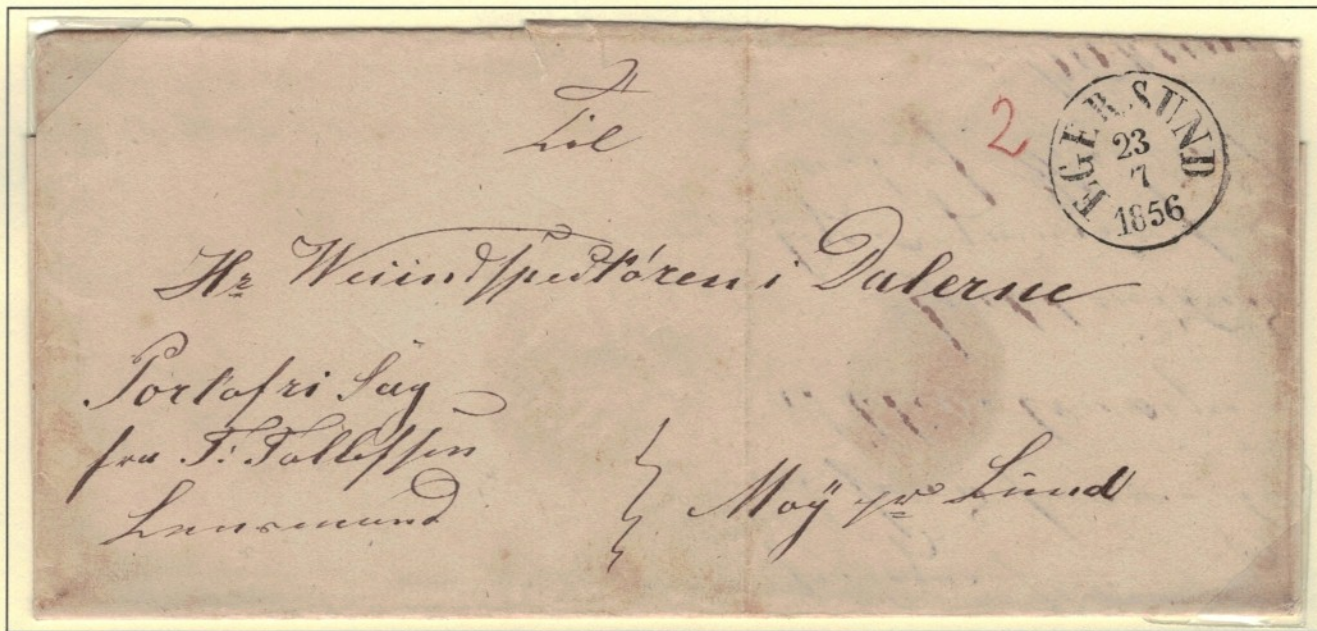 Til
2
EGERSUND
23
7
1856
Hr Weiindspektören i Dalerne
Portofri Sag
fra T: Tollefsen
Lensmand
Moÿ pr Lund